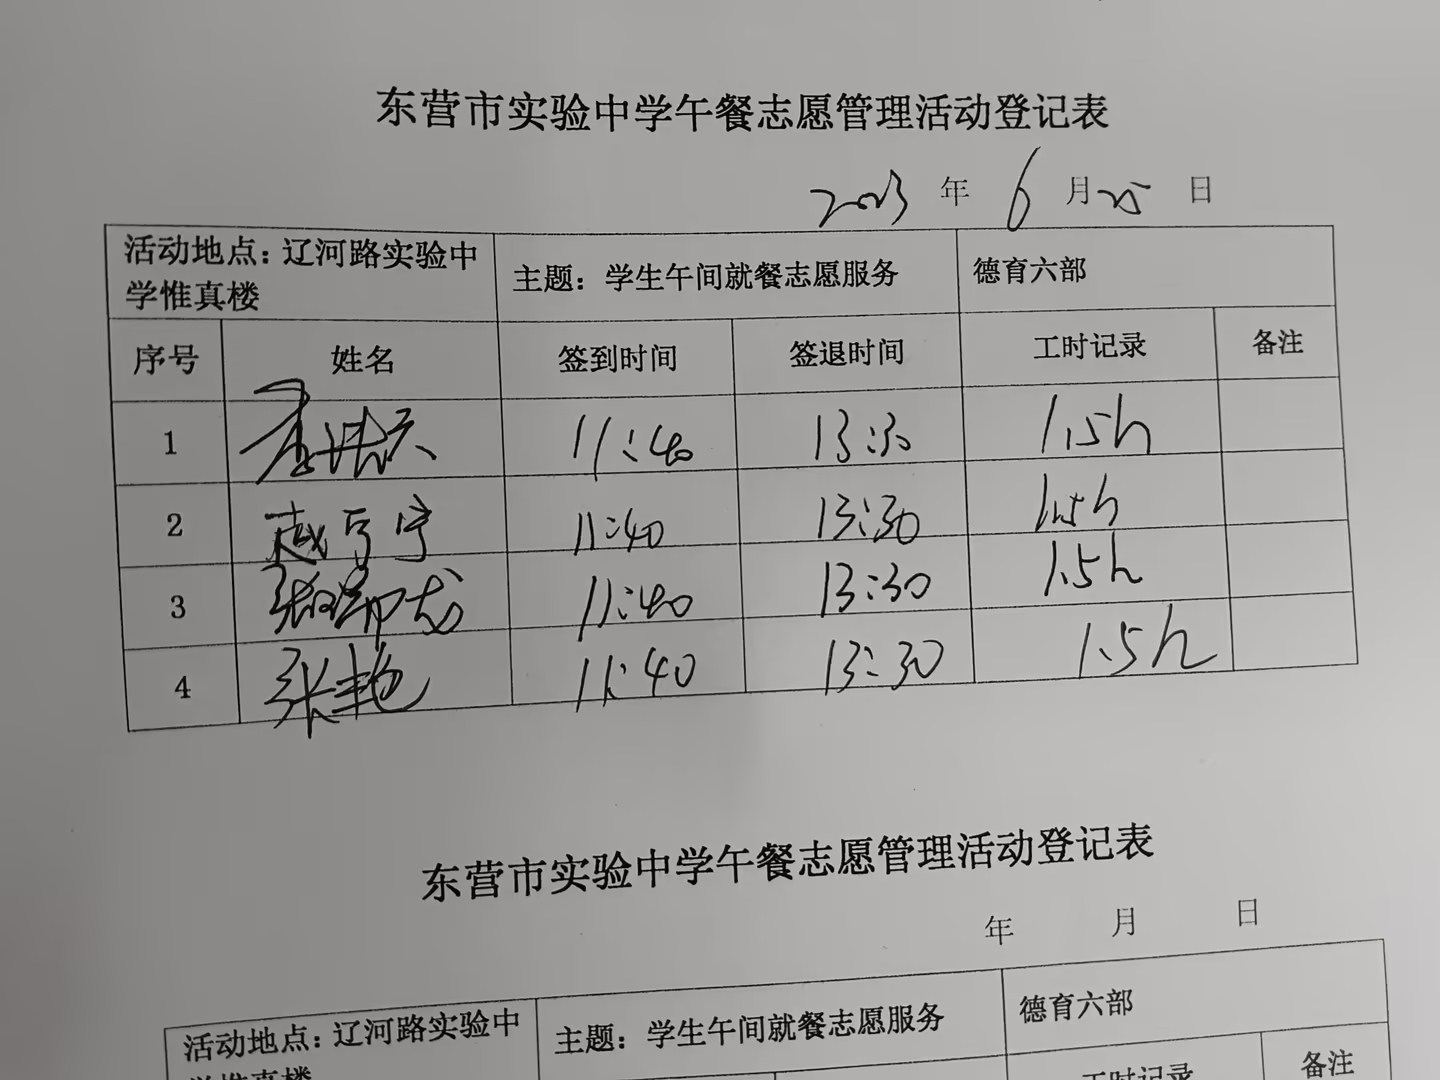 东营市实验中学午餐志愿管理活动登记表
2023 年 6 月 25 日
活动地点：辽河路实验中
学惟真楼
主题：学生午间就餐志愿服务
德育六部
序号 姓名 签到时间 签退时间 工时记录 备注
1 11:40 13:30 1.5h
2 11:40 13:30 1.5h
3 11:40 13:30 1.5h
4 张艳 11:40 13:30 1.5h
东营市实验中学午餐志愿管理活动登记表
年 月 日
活动地点：辽河路实验中
学惟真楼
主题：学生午间就餐志愿服务
德育六部
工时记录 备注